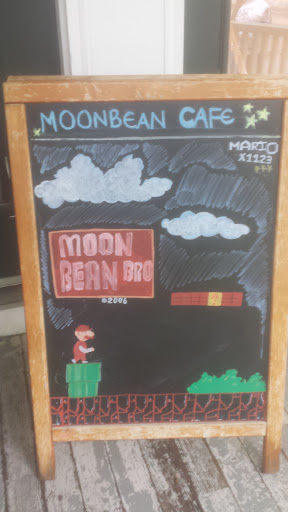 MOONBEAN CAFE
MARIO
X1123
MOON
BEAN BRO
©2006
?